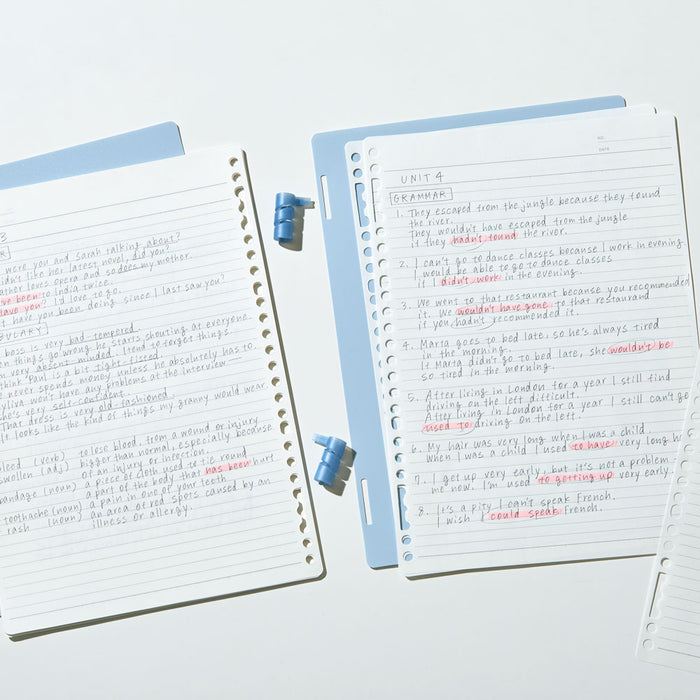 3
were you and Sarah talking about?
didn't like her latest novel, did you?
ather loves opera and so does my mother.
ve been to India twice.
ave you? I'd love to go.
t have you been doing since I last saw you?
BULARY
boss is very bad tempered.
en things go wrong he starts shouting at everyone.
m very absent minded. I tend to forget things.
think Paul is a bit tight-fisted.
e never spends money unless he absolutely has to.
ylvia won't have any problems at the interview.
he's very self-confident.
That dress is very old-fashioned.
It looks like the kind of things my granny would wear.
leed (verb) to lose blood, from a wound or injury
swollen (adj) bigger than normal, especially because
of an injury or infection.
bandage (noun) a piece of cloth used to tie round
a part of the body that has been hurt
toothache (noun) a pain in one of your teeth
rash (noun) an area of red spots caused by an
illness or allergy.
NO.
DATE
UNIT 4
GRAMMAR
1. They escaped from the jungle because they found
the river.
They wouldn't have escaped from the jungle
if they hadn't found the river.
2. I can't go to dance classes because I work in evening.
I would be able to go to dance classes
if I didn't work in the evening.
3. We went to that restaurant because you recommended
it. We wouldn't have gone to that restaurand
if you hadn't recommended it.
4. Marta goes to bed late, so he's always tired
in the morning.
If Marta didn't go to bed late, she wouldn't be
so tired in the morning.
5. After living in London for a year I still find
driving on the left difficult.
After living in London for a year I still can't go
used to driving on the left.
6. My hair was very long when I was a child.
When I was a child I used to have very long h
7. I get up very early, but it's not a problem
me now. I'm used to getting up very early.
8. It's a pity I can't speak French.
I wish I could speak French.